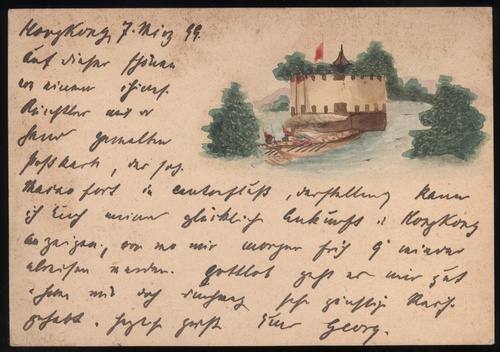 HongKong, 7. März 99.
Auf dieser schönen
von einem chines.
Künstler
gemalten
Postkarte, das sog.
fort in cantonfluß, darstellend kann
ich Euch meine glückliche Ankunft in HongKong
anzeigen, von wo wir morgen früh 9 wieder
abreisen werden. Gottlob geht es mir gut
haben wir doch durchweg sehr günstige
gehabt. herzlich grüßt Euer Georg.